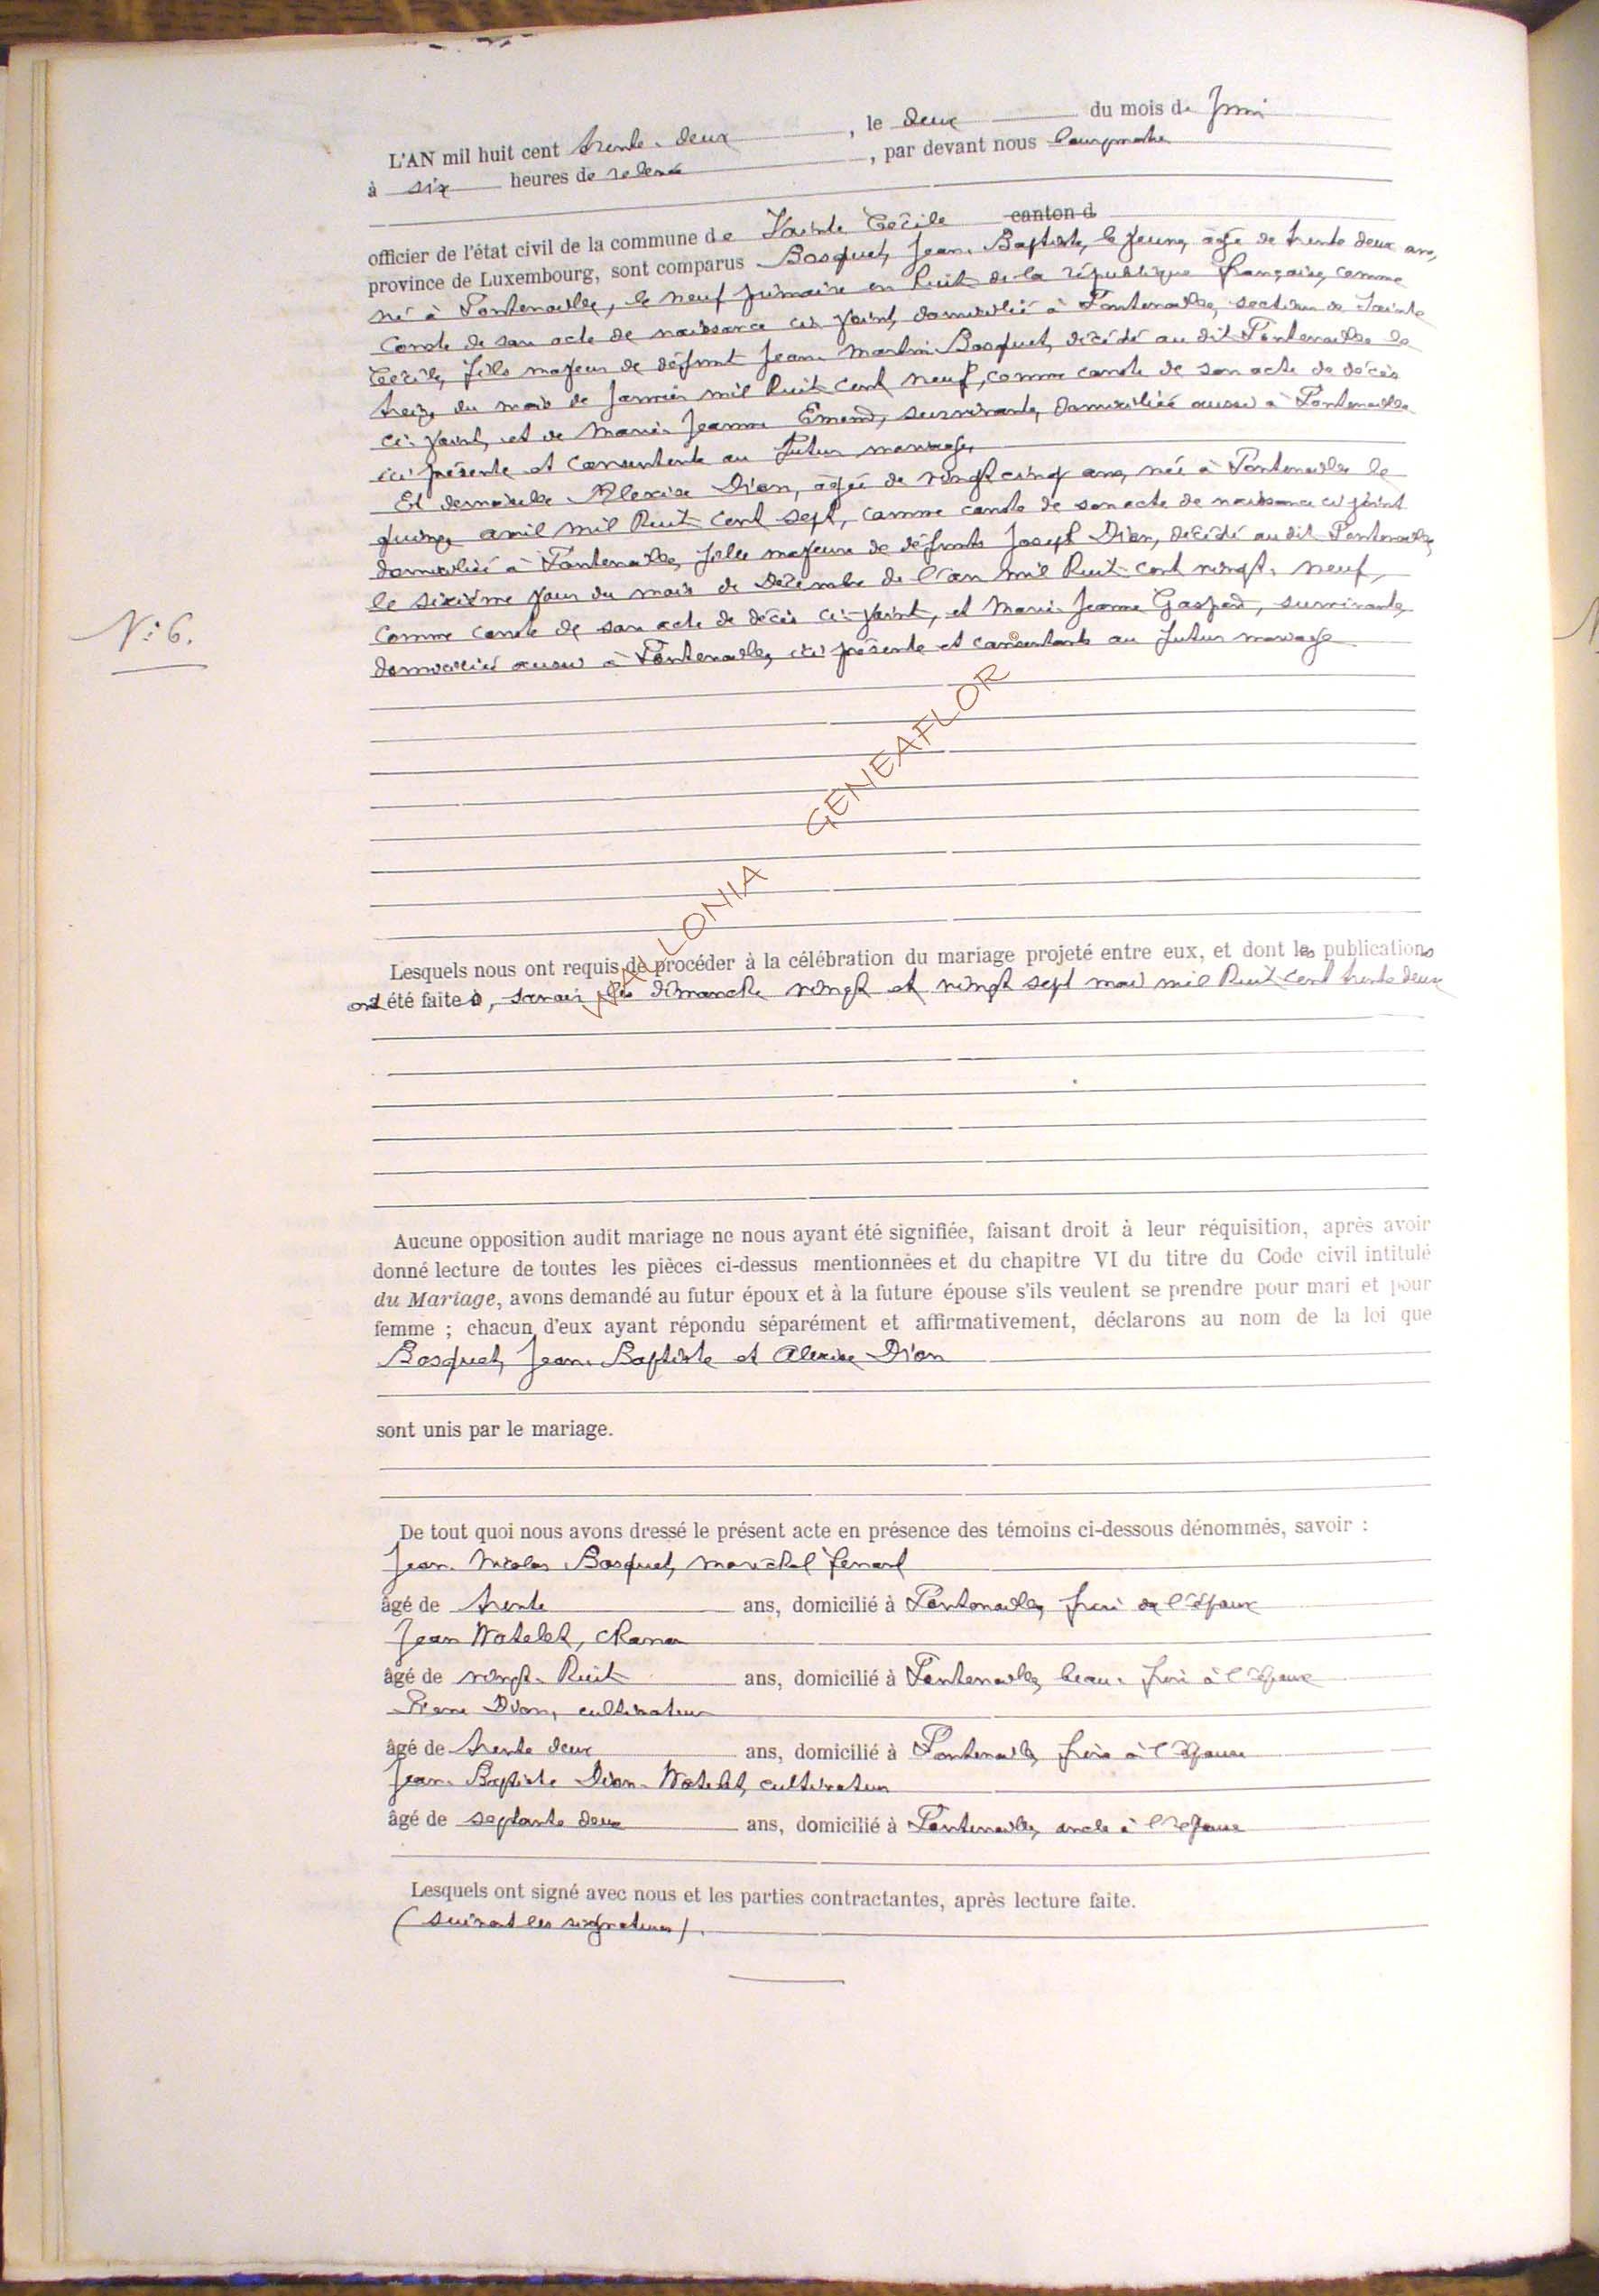 L'AN mil huit cent trente-deux, le deux du mois de Juin
à six heures de relevée, par devant nous bourgmestre
officier de l'état civil de la commune de Sainte Cécile canton d
province de Luxembourg, sont comparus Bosquet, Jean-Baptiste, le jeune, âgé de trente deux ans,
né à Fontenaille, le neuf frimaire an huit de la république française, comme
conste de son acte de naissance ci-joint, domicilié à Fontenaille, section de Sainte
Cécile, fils majeur de défunt Jean-Martin Bosquet, décédé au dit Fontenaille le
treize du mois de Janvier mil huit cent neuf, comme conste de son acte de décès
ci-joint, et de Marie-Jeanne Emond, survivante, domiciliée aussi à Fontenaille
ici présente et consentente au futur mariage,
Et demoiselle Alexise Dion, âgée de vingt cinq ans, née à Fontenaille le
quinze avril mil huit cent sept, comme conste de son acte de naissance ci-joint
domiciliée à Fontenaille, fille majeure de défunts Joseph Dion, décédé au dit Fontenaille,
le sixième jour du mois de Décembre de l'an mil huit cent vingt-neuf,
comme conste de son acte de décès ci-joint, et Marie-Jeanne Gaspard, survivante,
N° 6.
domiciliée aussi à Fontenaille, ici présente et consentante au futur mariage
WALLONIA GENEAFLOR
Lesquels nous ont requis de procéder à la célébration du mariage projeté entre eux, et dont les publications
ont été faites, savoir les dimanche vingt et vingt sept mai mil huit cent trente deux
Aucune opposition audit mariage ne nous ayant été signifiée, faisant droit à leur réquisition, après avoir
donné lecture de toutes les pièces ci-dessus mentionnées et du chapitre VI du titre du Code civil intitulé
du Mariage, avons demandé au futur époux et à la future épouse s'ils veulent se prendre pour mari et pour
femme ; chacun d'eux ayant répondu séparément et affirmativement, déclarons au nom de la loi que
Bosquet, Jean-Baptiste et Alexise Dion
sont unis par le mariage.
De tout quoi nous avons dressé le présent acte en présence des témoins ci-dessous dénommés, savoir :
Jean-Nicolas Bosquet, maréchal ferrant
âgé de trente ans, domicilié à Fontenaille, frère de l'époux
Jean Watelet,
âgé de vingt-huit ans, domicilié à Fontenaille, beau-frère à l'époux
Pierre Dion, cultivateur
âgé de trente deux ans, domicilié à Fontenaille, frère à l'épouse
Jean-Baptiste Dion-Watelet, cultivateur
âgé de septante deux ans, domicilié à Fontenaille, oncle à l'épouse
Lesquels ont signé avec nous et les parties contractantes, après lecture faite.
(suivent les signatures).